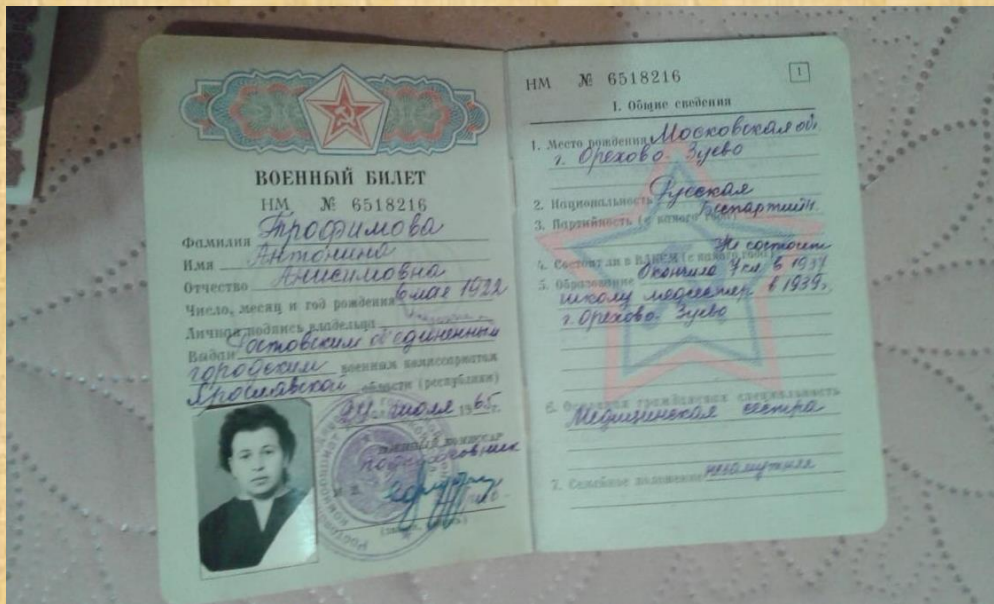 ВОЕННЫЙ БИЛЕТ
НМ № 6518216
Фамилия Трофимова
Имя Антонина
Отчество Анисимовна
Число, месяц и год рождения 6 мая 1922
Личная подпись владельца
Выдан Ростовским объединенным
городским военным комиссариатом
Ярославской области (республики)
24 июля 1965 г.
Военный комиссар
подполковник
НМ № 6518216
1
I. Общие сведения
1. Место рождения Московская об.
г. Орехово-Зуево
2. Национальность Русская
3. Партийность (с какого года) Беспартийн.
4. Состоял ли в ВЛКСМ (с какого года) Не состоит
5. Образование Окончила 7 кл. в 1937
школу медсестер в 1939г.
г. Орехово-Зуево
6. Основная гражданская специальность
Медицинская сестра
7. Семейное положение незамужняя